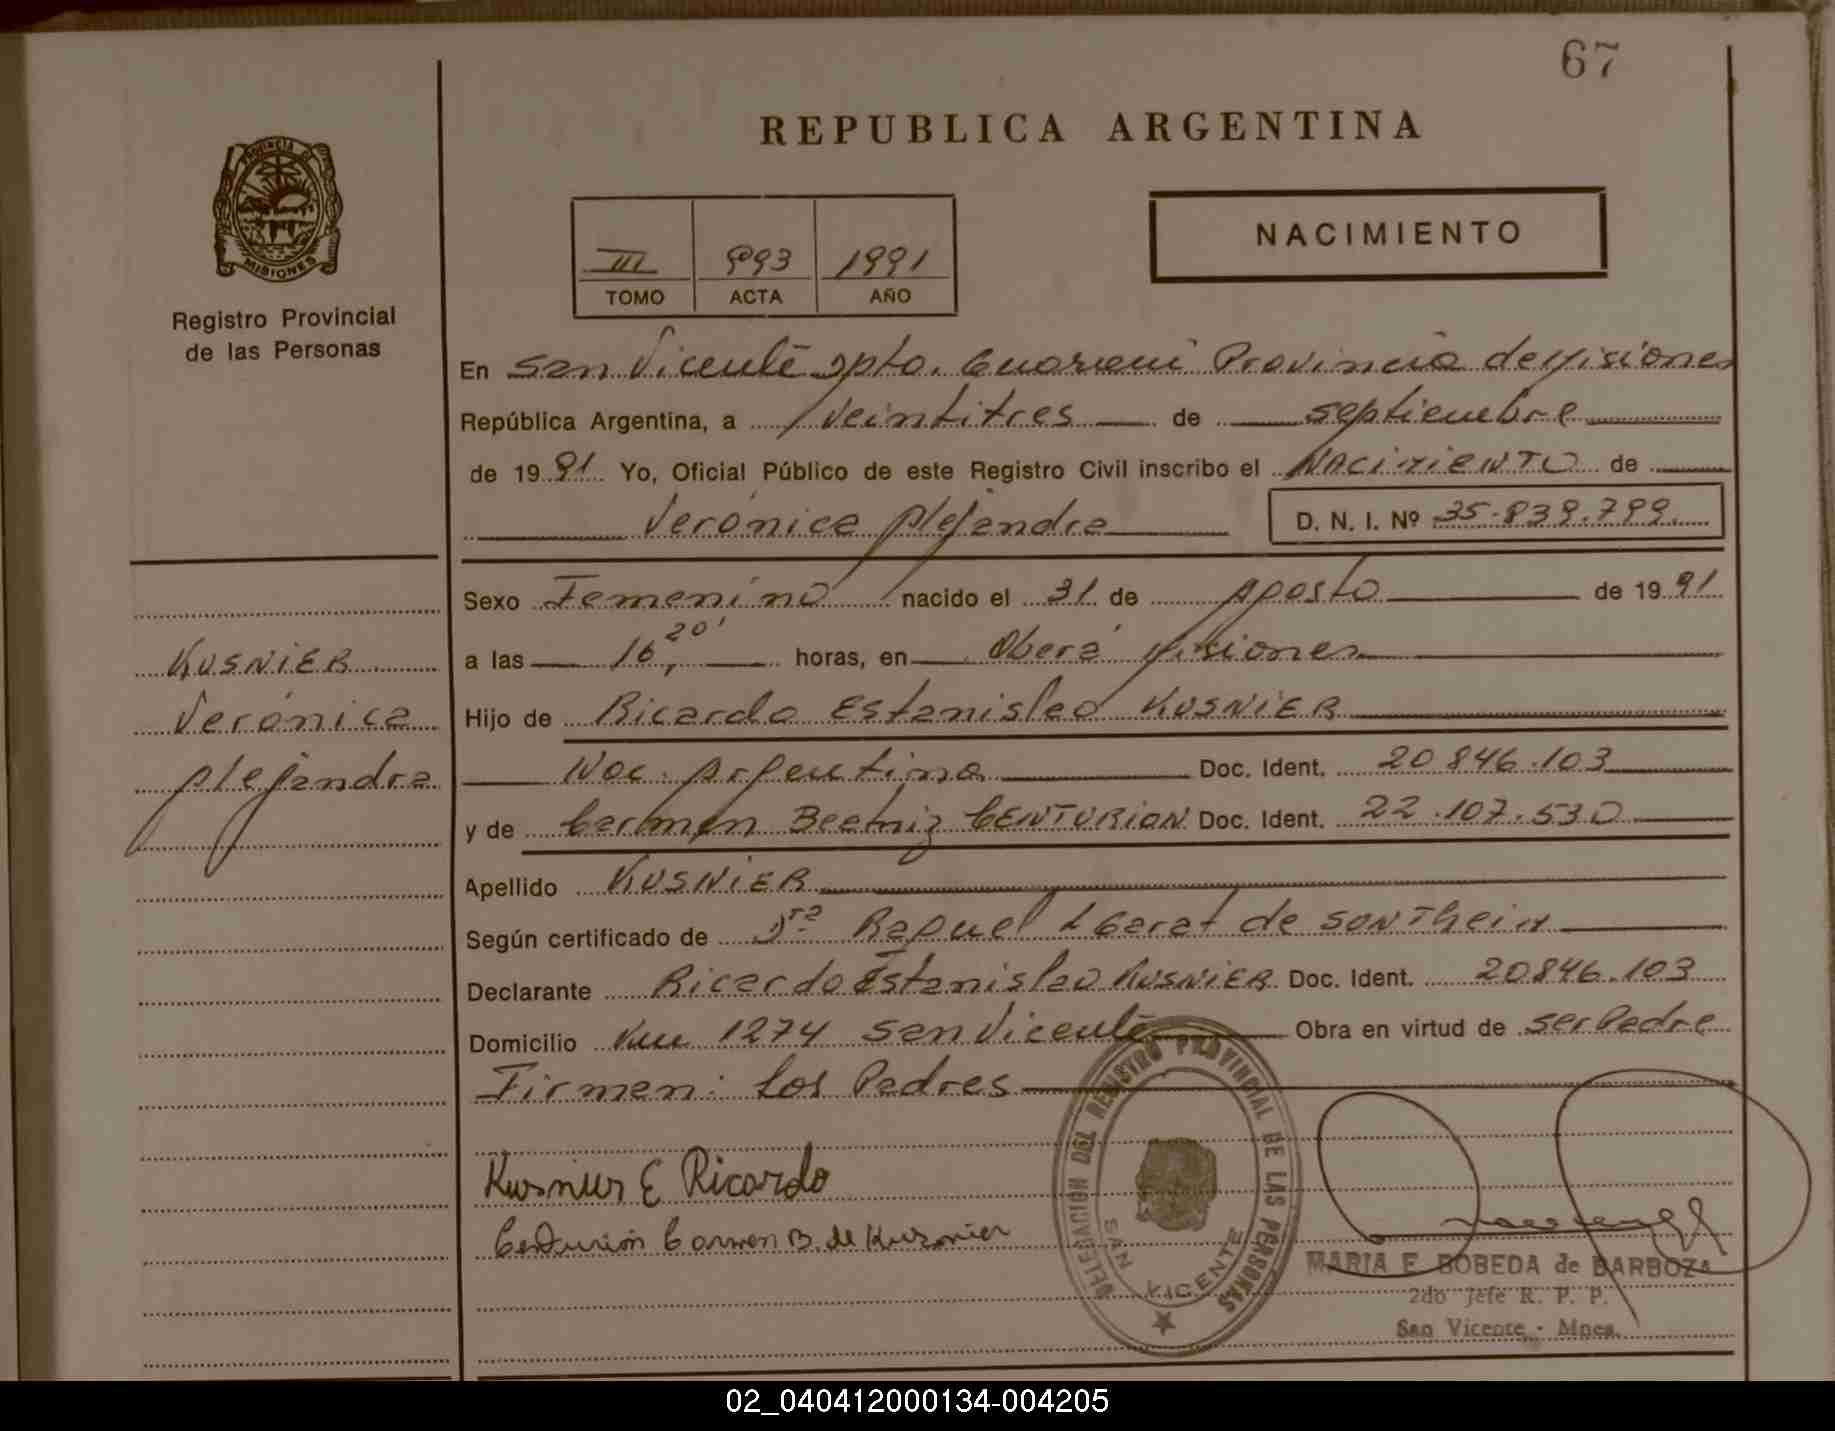 67
REPUBLICA ARGENTINA
PROVINCIA DE
MISIONES
Registro Provincial
de las Personas
III 993 1991
TOMO ACTA AÑO
NACIMIENTO
En San Vicente Dpto. Guarani Provincia de Misiones
República Argentina, a veintitres de septiembre
de 1991 Yo, Oficial Público de este Registro Civil inscribo el NACIMIENTO de
Verónica Alejandra D. N. I. Nº 35.839.799.
Sexo Femenino nacido el 31 de Agosto de 1991
a las 16,20' horas, en Oberá Misiones
Hijo de Ricardo Estanislao KUSNIER
Nac. Argentina Doc. Ident. 20.846.103
y de Carmen Beatriz CENTURIAN Doc. Ident. 22.107.530
Apellido KUSNIER
Según certificado de Dra Raquel L Garat de SONTheim
Declarante Ricardo Estanislao KUSNIER Doc. Ident. 20.846.103
Domicilio Km 1274 San Vicente Obra en virtud de ser Padre
Firman: Los Padres
KUSNIER
Verónica
Alejandra
Kusnier E Ricardo
Centurión Carmen B. de Kuzmier
DELEGACION DEL REGISTRO PROVINCIAL DE LAS PERSONAS
SAN VICENTE
MARIA E. BOBEDA de BARBOZA
2do Jefe R. P. P.
San Vicente - Mnes.
02_040412000134-004205